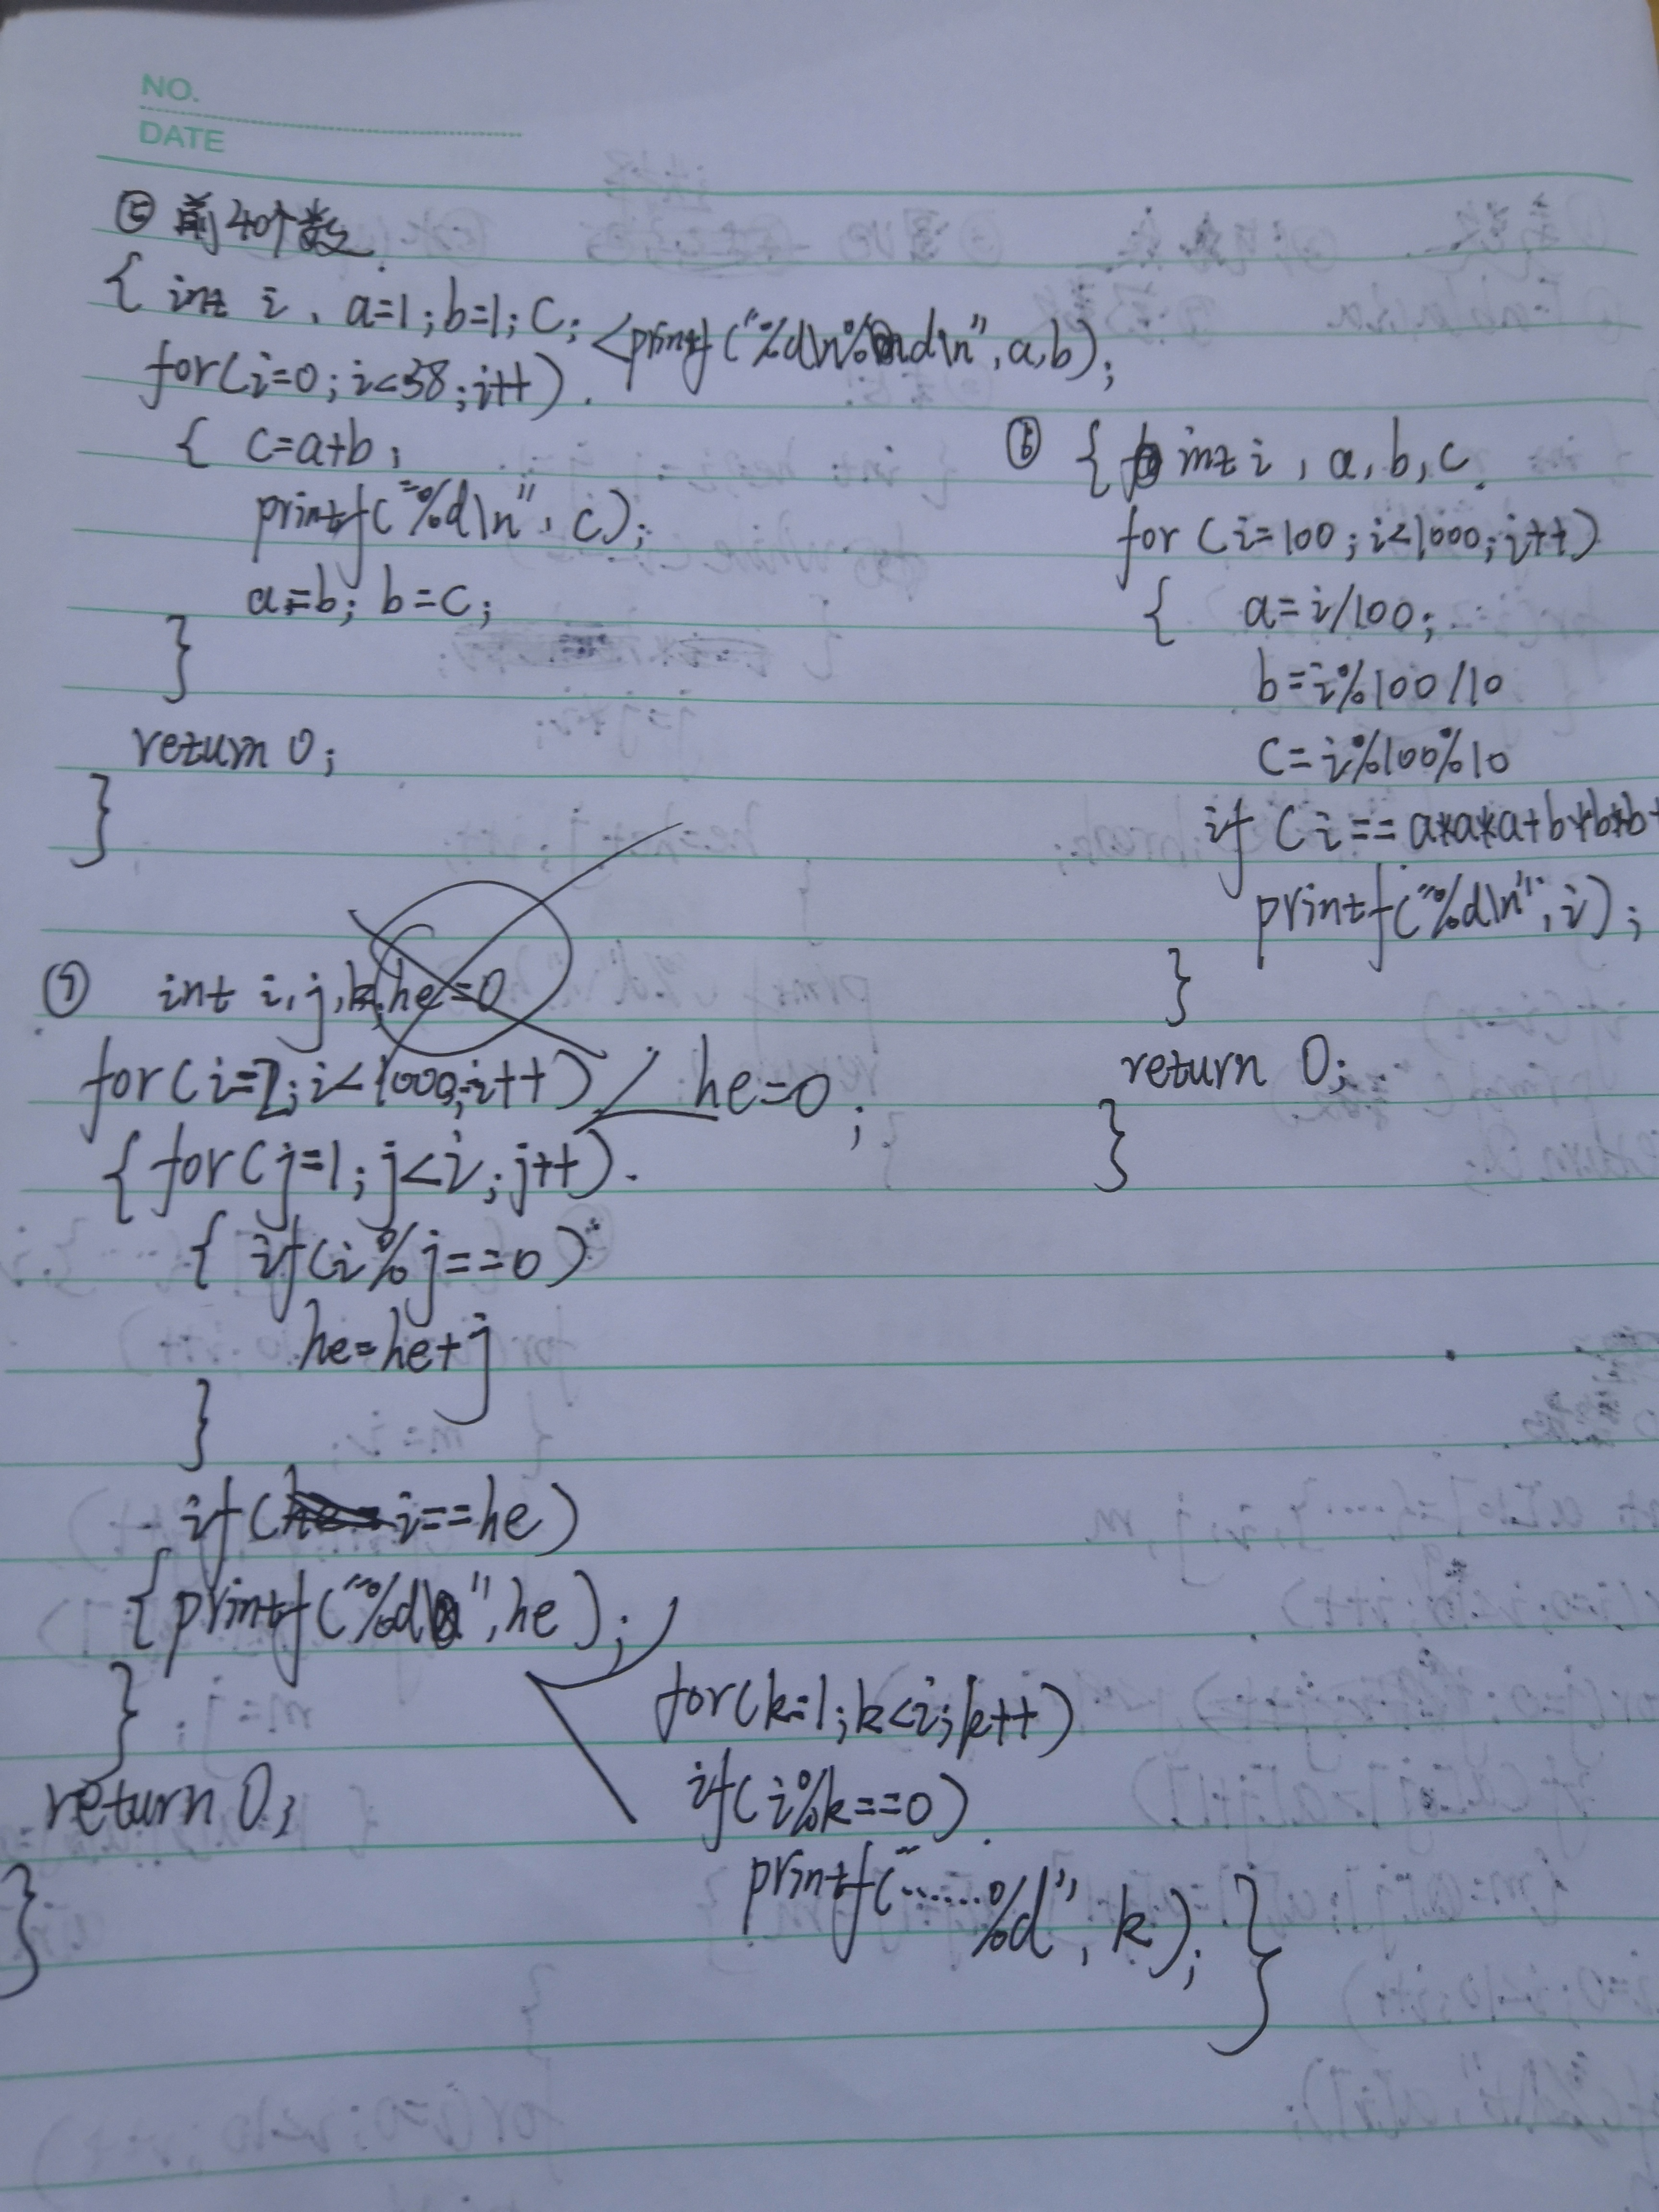 NO.
DATE
⑤ 前40个数
{ int i, a=1; b=1; c; <printf("%d\n%d\n", a,b);
for(i=0; i<38; i++)
{ c=a+b;
printf("%d\n", c);
a=b; b=c;
}
return 0;
}
⑥ { int i, a, b, c
for (i=100; i<1000; i++)
{ a=i/100;
b=i%100/10
c=i%100%10
if (i==a*a*a+b*b*b+
printf("%d\n", i);
}
return 0;
}
⑦ int i, j, k, he=0
for(i=2; i<1000; i++) he=0;
{ for(j=1; j<i; j++)
{ if(i%j==0)
he=he+j
}
if(i==he)
{printf("%d", he);
for(k=1; k<i; k++)
if(i%k==0)
printf("......%d", k); }
}
return 0;
}